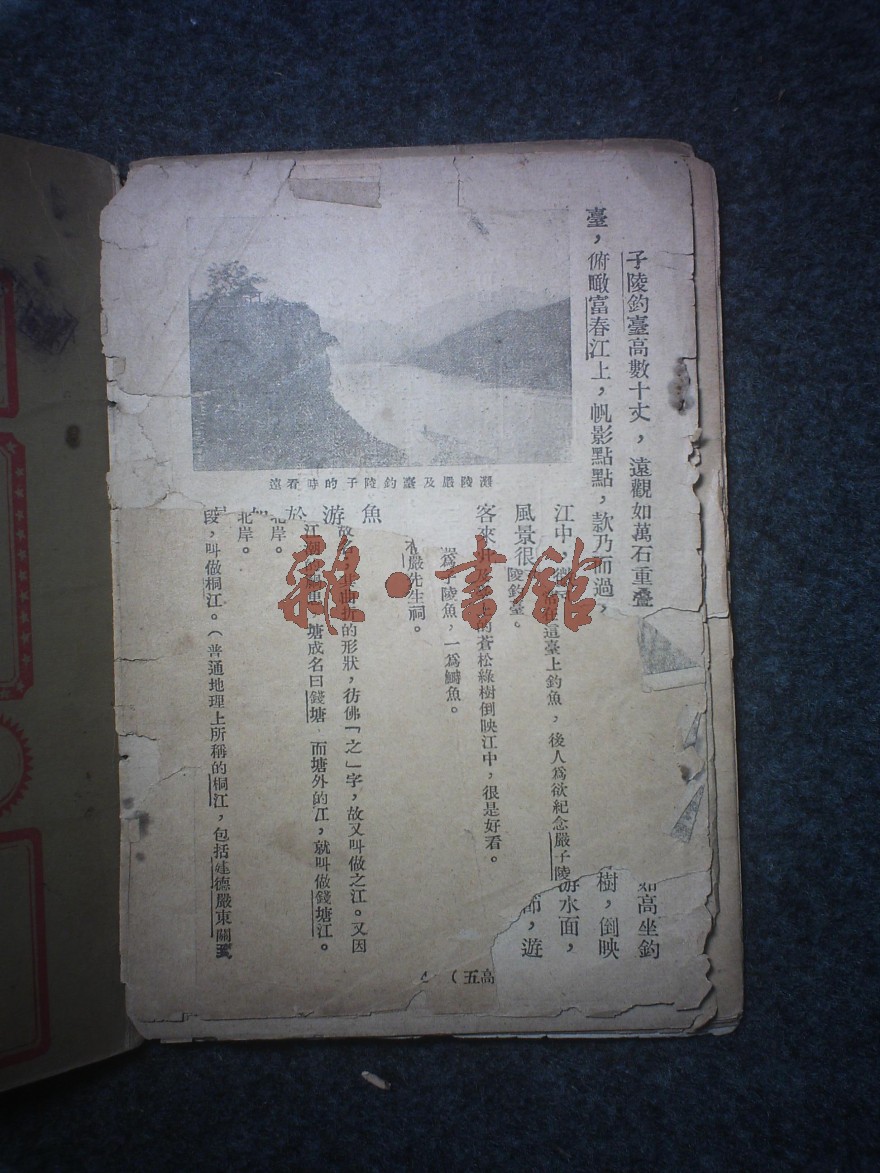 子陵釣臺高數十丈，遠觀如萬石重叠
如高坐釣
臺，俯瞰富春江上，帆影點點，款乃而過，
樹，倒映
江中，
在這臺上釣魚，後人爲欲紀念嚴子陵
游水面，
風景很
陵釣臺。
節，遊
客來
的蒼松綠樹倒映江中，很是好看。
爲子陵魚，一爲鰣魚。
嚴先生祠。
遠看時的子陵釣臺及嚴陵灘
魚
游
於
曲折的形狀，彷彿「之」字，故又叫做之江。又因
塘成名曰錢塘、而塘外的江，就叫做錢塘江。
北岸。
北岸。
段，叫做桐江。（普通地理上所稱的桐江，包括建德嚴東關
高五（
雜·書館